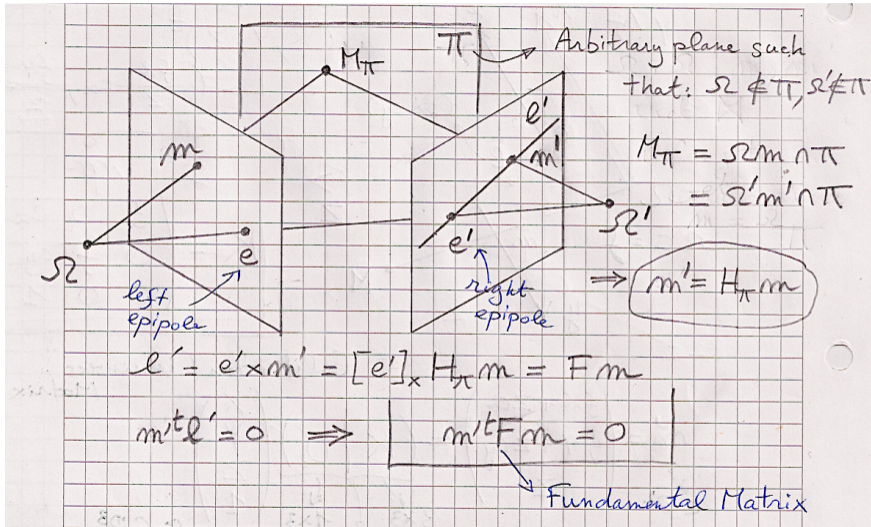 Π
Arbitrary plane such
that: Ω ∉ Π, Ω' ∉ Π
M_Π
l'
m
m'
M_Π = Ωm ∩ Π
= Ω'm' ∩ Π
Ω
e
e'
Ω'
left
epipole
right
epipole
⇒ m' = H_π m
l' = e' × m' = [e']ₓ H_π m = F m
m'ᵗ l' = 0 ⇒ m'ᵗ F m = 0
Fundamental Matrix